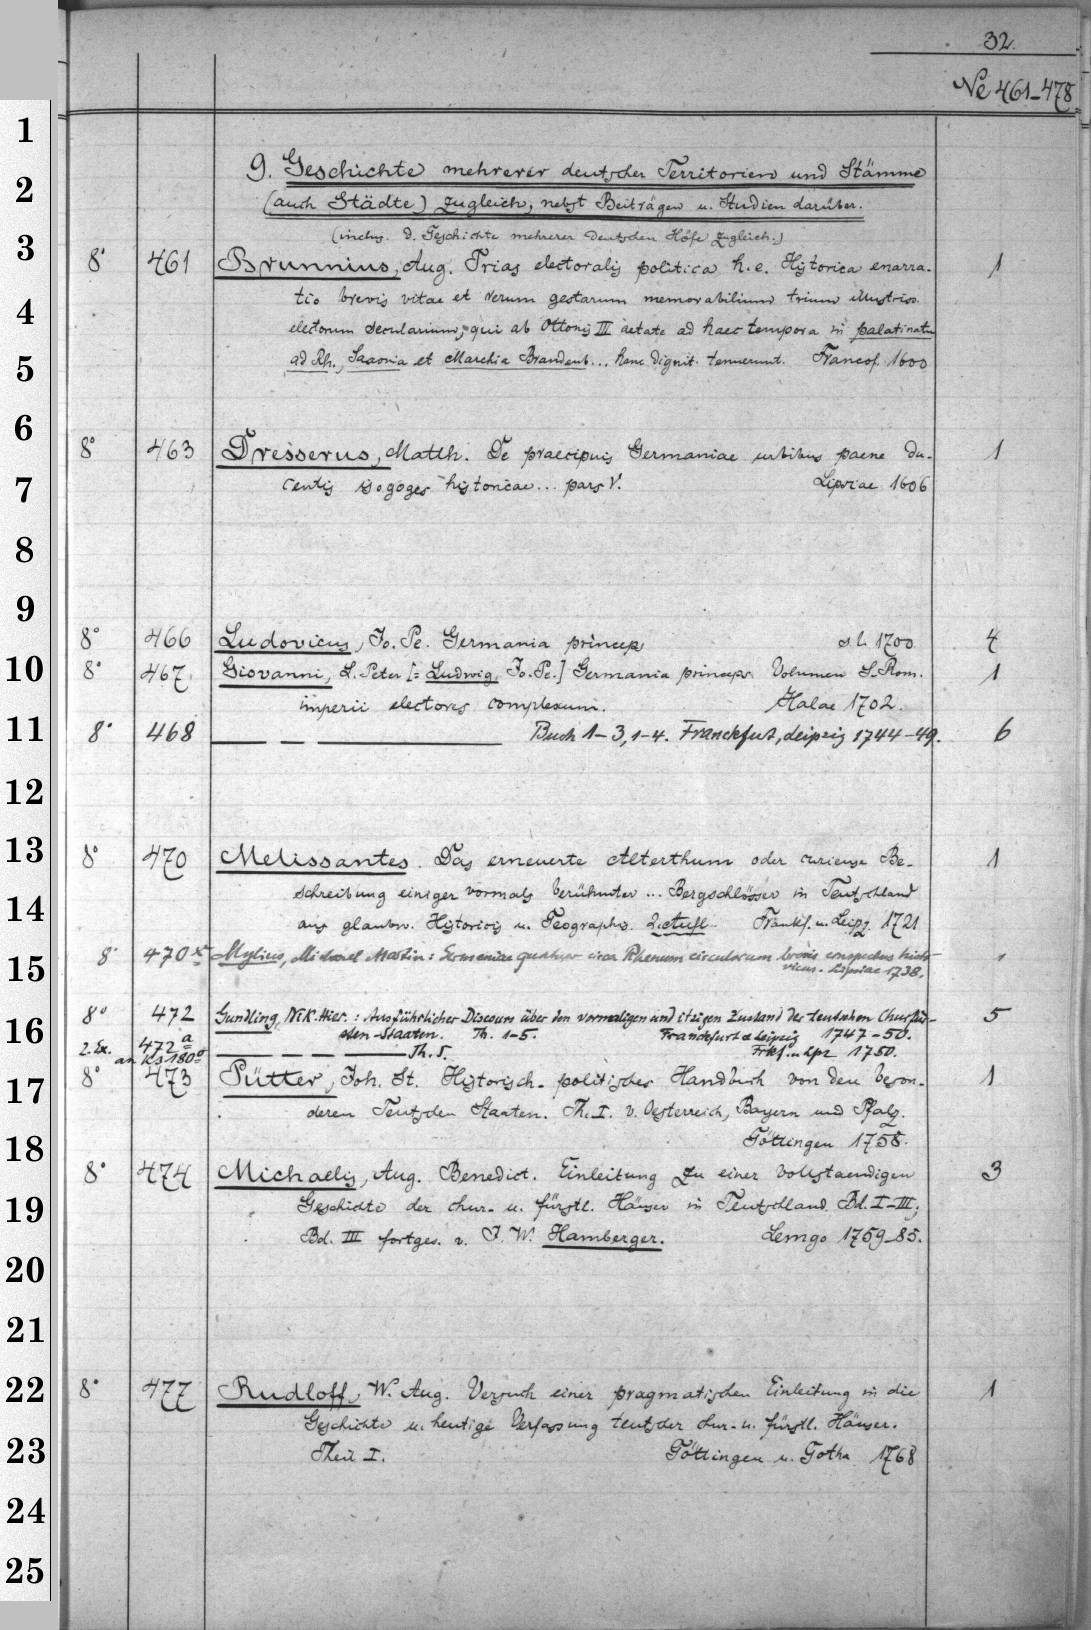 32.
Ne 461-478
9. Geschichte mehrerer deutscher Territorien und Stämme
(auch Städte) zugleich, nebst Beiträgen u. Studien darüber.
(inclus. d. Geschichte mehrerer deutschen Höfe zugleich.)
8° 461 Brunnius, Aug. Trias electoralis politica h.e. Historica enarra- 1
tio brevis vitae et rerum gestarum memorabilium trium illustriss.
electorum secularium, qui ab Ottonis III aetate ad haec tempora in palatinatu
ad Rh., Saxonia et Marchia Brandenb... hanc dignit. tenuerunt. Francof. 1600
8° 463 Dresserus, Matth. De praecipuis Germaniae urbibus paene du- 1
centis isagoges historicae... pars V. Lipsiae 1606
8° 466 Ludovicus, Jo. Pe. Germania princeps s.l. 1700 4
8° 467. Giovanni, L. Peter [= Ludwig, Jo. Pe.] Germania princeps. Volumen S. Rom. 1
imperii electores complexum. Halae 1702.
8° 468 — — — Buch 1-3, 1-4. Franckfurt, Leipzig 1744-49. 6
8° 470 Melissantes. Das erneuerte Alterthum oder curieuse Be- 1
schreibung einiger vormals berühmter ... Bergschlösser in Teutschland
aus glaubw. Historicis u. Geographis. 2. Aufl. Frankf. u. Leipz. 1721
8° 470 x Mylius, Michael Martin: Germaniae quatuor circa Rhenum circulorum brevis conspectus histo- 1
ricus. Lipsiae 1738.
8° 472 Gundling, Nik. Hier.: Ausführlicher Discours über den vormaligen und itzigen Zustand der teutschen Churfür- 5
sten-Staaten. Th. 1-5. Franckfurt & Leipzig 1747-50.
2. Ex. 472 a — — — Th. 5. Frkf. u. Lpz 1750.
an Ks 180°
8° 473 Pütter, Joh. St. Historisch-politisches Handbuch von den beson- 1
deren Teutschen Staaten. Th. I. v. Oesterreich, Bayern und Pfalz.
Göttingen 1758.
8° 474 Michaelis, Aug. Benedict. Einleitung zu einer vollstaendigen 3
Geschichte der chur- u. fürstl. Häuser in Teutschland. Bd. I-III;
Bd. III fortges. v. J. W. Hamberger. Lemgo 1759-85.
8° 477 Rudloff, W. Aug. Versuch einer pragmatischen Einleitung in die 1
Geschichte u. heutige Verfassung teutscher chur- u. fürstl. Häuser.
Theil I. Göttingen u. Gotha 1768
1
2
3
4
5
6
7
8
9
10
11
12
13
14
15
16
17
18
19
20
21
22
23
24
25